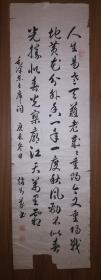 人生易老天難老歲々重陽今又重陽戰
地黃花分外香一年一度秋風勁不似春
光勝似春光寥廓江天萬里霜
毛澤東主席詞 庚辰冬日